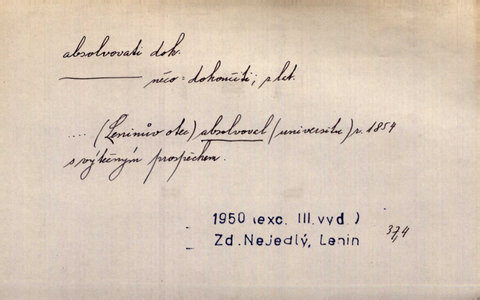 absolvovati dok.
něco = dokončiti; s let.
.... (Leninův otec) absolvovel (universitu) r. 1854
s výtečným prospěchem.
1950 (exc. III. vyd.)
Zd. Nejedlý, Lenin
37,4